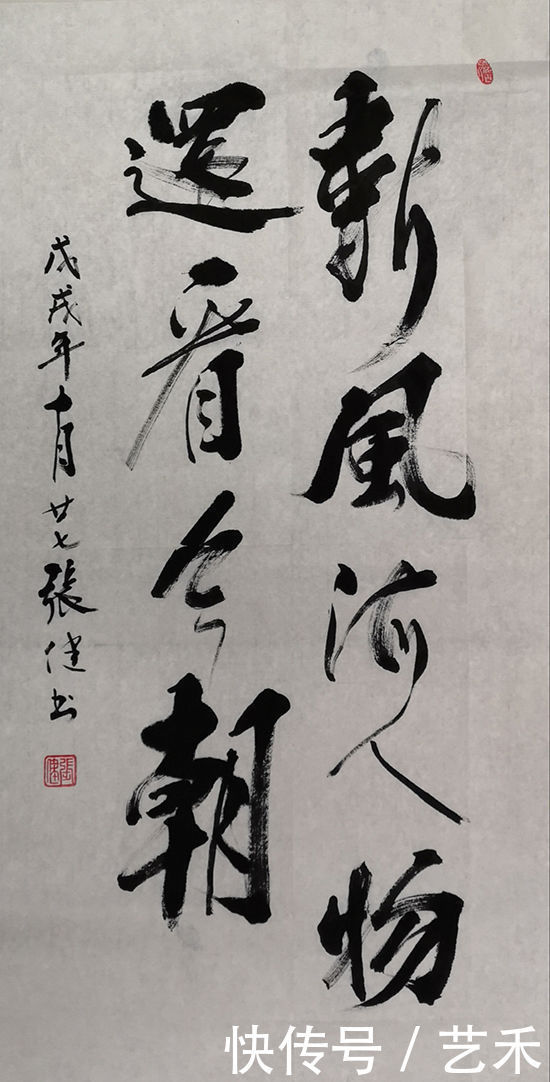 數風流人物
還看今朝
戊戌年十月廿七張健书
快传号 / 艺禾